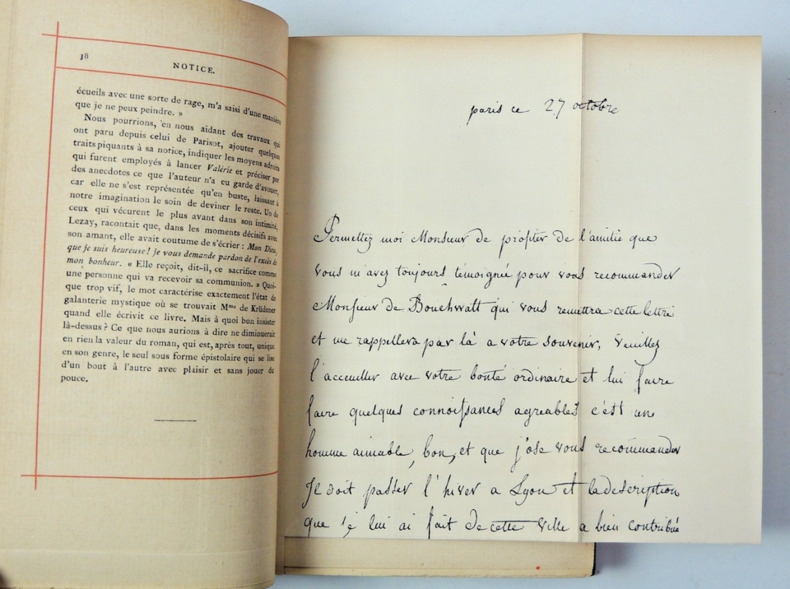 38
NOTICE.
écueils avec une sorte de rage, m'a saisi d'une manière
que je ne peux peindre. »
Nous pourrions, en nous aidant des travaux qui
ont paru depuis celui de Parisot, ajouter quelques
traits piquants à sa notice, indiquer les moyens adroits
qui furent employés à lancer Valérie et préciser par
des anecdotes ce que l'auteur n'a eu garde d'avouer,
car elle ne s'est représentée qu'en buste, laissant à
notre imagination le soin de deviner le reste. Un de
ceux qui vécurent le plus avant dans son intimité,
Lezay, racontait que, dans les moments décisifs avec
son amant, elle avait coutume de s'écrier : Mon Dieu,
que je suis heureuse ! je vous demande pardon de l'excès de
mon bonheur. « Elle reçoit, dit-il, ce sacrifice comme
une personne qui va recevoir sa communion. » Quoi-
que trop vif, le mot caractérise exactement l'état de
galanterie mystique où se trouvait Mme de Krüdner
quand elle écrivit ce livre. Mais à quoi bon insister
là-dessus ? Ce que nous aurions à dire ne diminuerait
en rien la valeur du roman, qui est, après tout, unique
en son genre, le seul sous forme épistolaire qui se lise
d'un bout à l'autre avec plaisir et sans jouer du
pouce.
paris ce 27 octobre
Permettez moi Monsieur de profiter de l'amitie que
vous m avez toujours témoignée pour vous recommander
Monsieur de Bouchwatt qui vous remettra cette lettre
et me rappellera par là a votre souvenir, Veuillez
l'acceuiller avec votre bonté ordinaire et lui faire
faire quelques connoissances agreables c'est un
homme aimable, bon, et que j'ose vous recommander
Il doit passer l'hiver a Lyon et la description
que je lui ai fait de cette ville a bien contribué